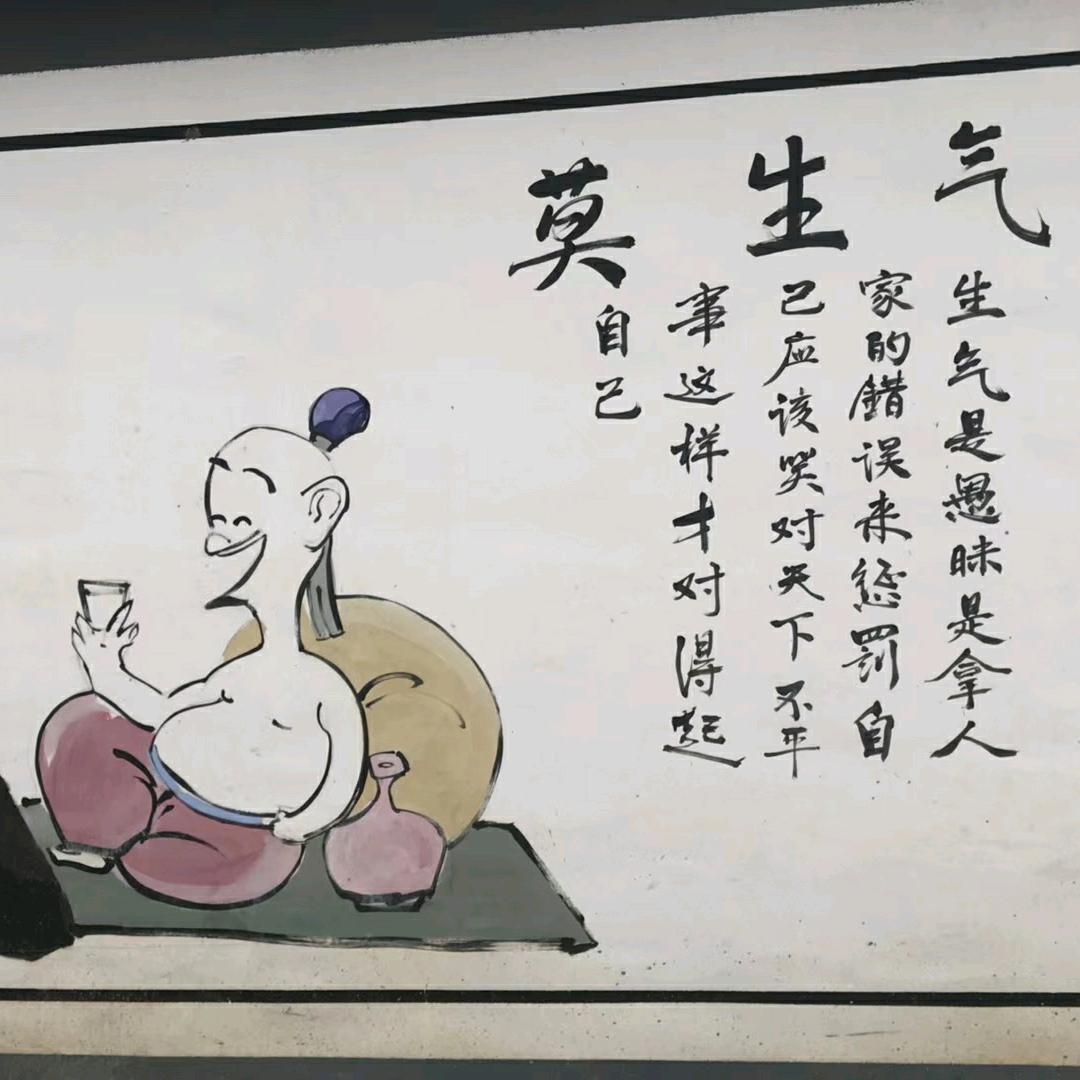 莫生气
生气是愚昧是拿人
家的錯误来惩罚自
己应该笑对天下不平
事这样才对得起
自己